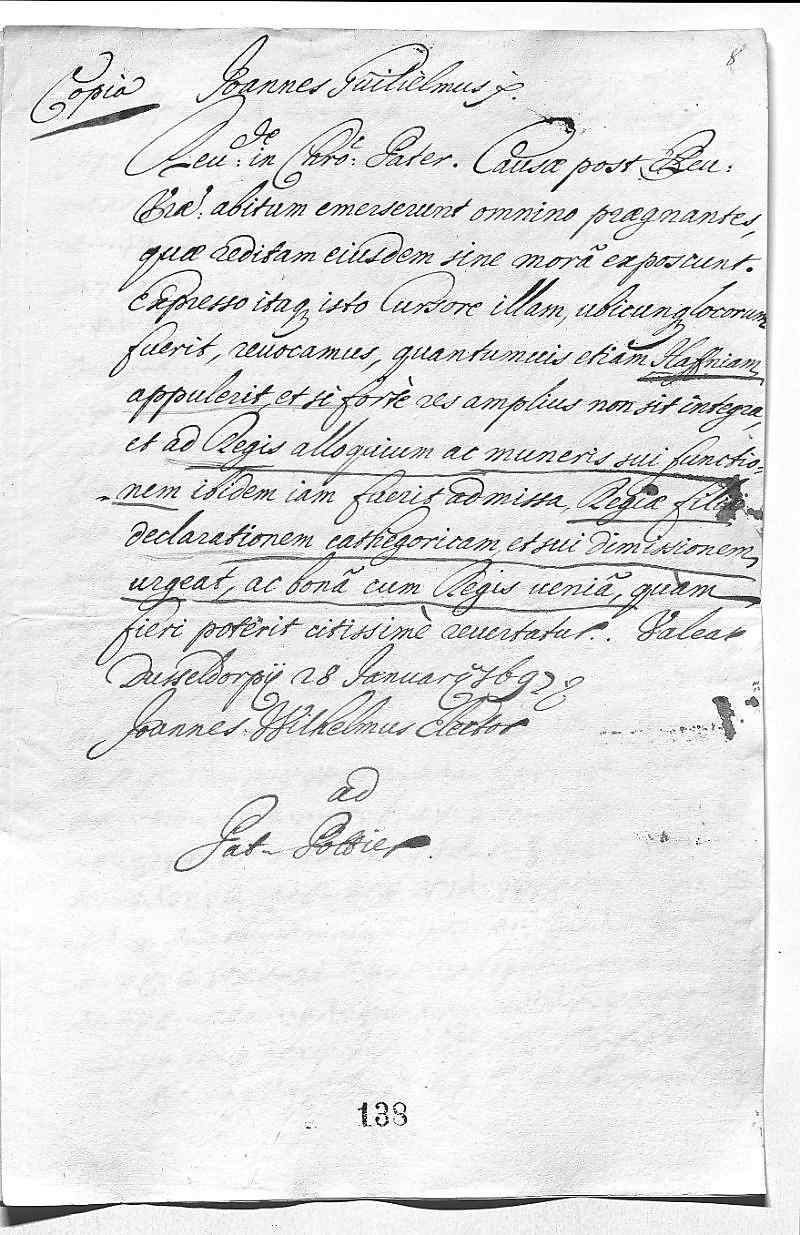 8
Copia Joannes Guilielmus p.
Reu:de in Chro: Pater. Causæ post Reu:
Vræ: abitum emerserunt omnino prægnantes,
quæ reditum eiusdem sine morâ exposcunt.
Expresso itaq isto Cursore illam, ubicunq locorum
fuerit, revocamus, quantumuis etiam Hafniam
appulerit, et si fortè res amplius non sit integra,
et ad Regis alloquium ac muneris sui functio-
-nem ibidem iam fuerit admissa, Regiæ
declarationem cathegoricam, et sui dimissionem
urgeat, ac bonâ cum Regis ueniâ, quàm
fieri poterit citissimè reuertatur. Valeat
Dusseldorpij 28 Januarij 1692
Joannes Wilhelmus Elector
ad
Pat-
138